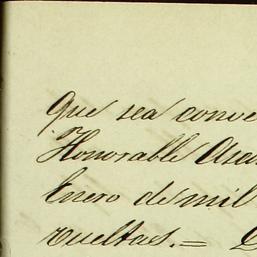 Que sea conve
Honorable Asa
Enero de mil
vueltas.=